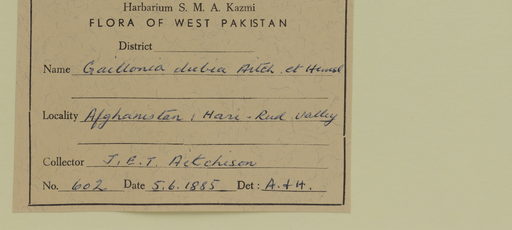 Harbarium S. M. A. Kazmi
FLORA OF WEST PAKISTAN
District
Name Gaillonia dubia Aitch. et Hemsl
Locality Afghanistan, Hari-Rud valley
Collector J. E. T. Aitchison
No. 602 Date 5.6.1885 Det: A.+H.